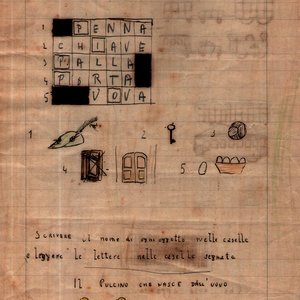 1 PENNA
2 CHIAVE
3 PALLA
4 PORTA
5 UOVA
1 2 3
4 5
SCRIVERE il nome di ogni oggetto nelle caselle
e leggere le lettere nelle caselle segnate
IL PULCINO CHE NASCE DALL'UOVO